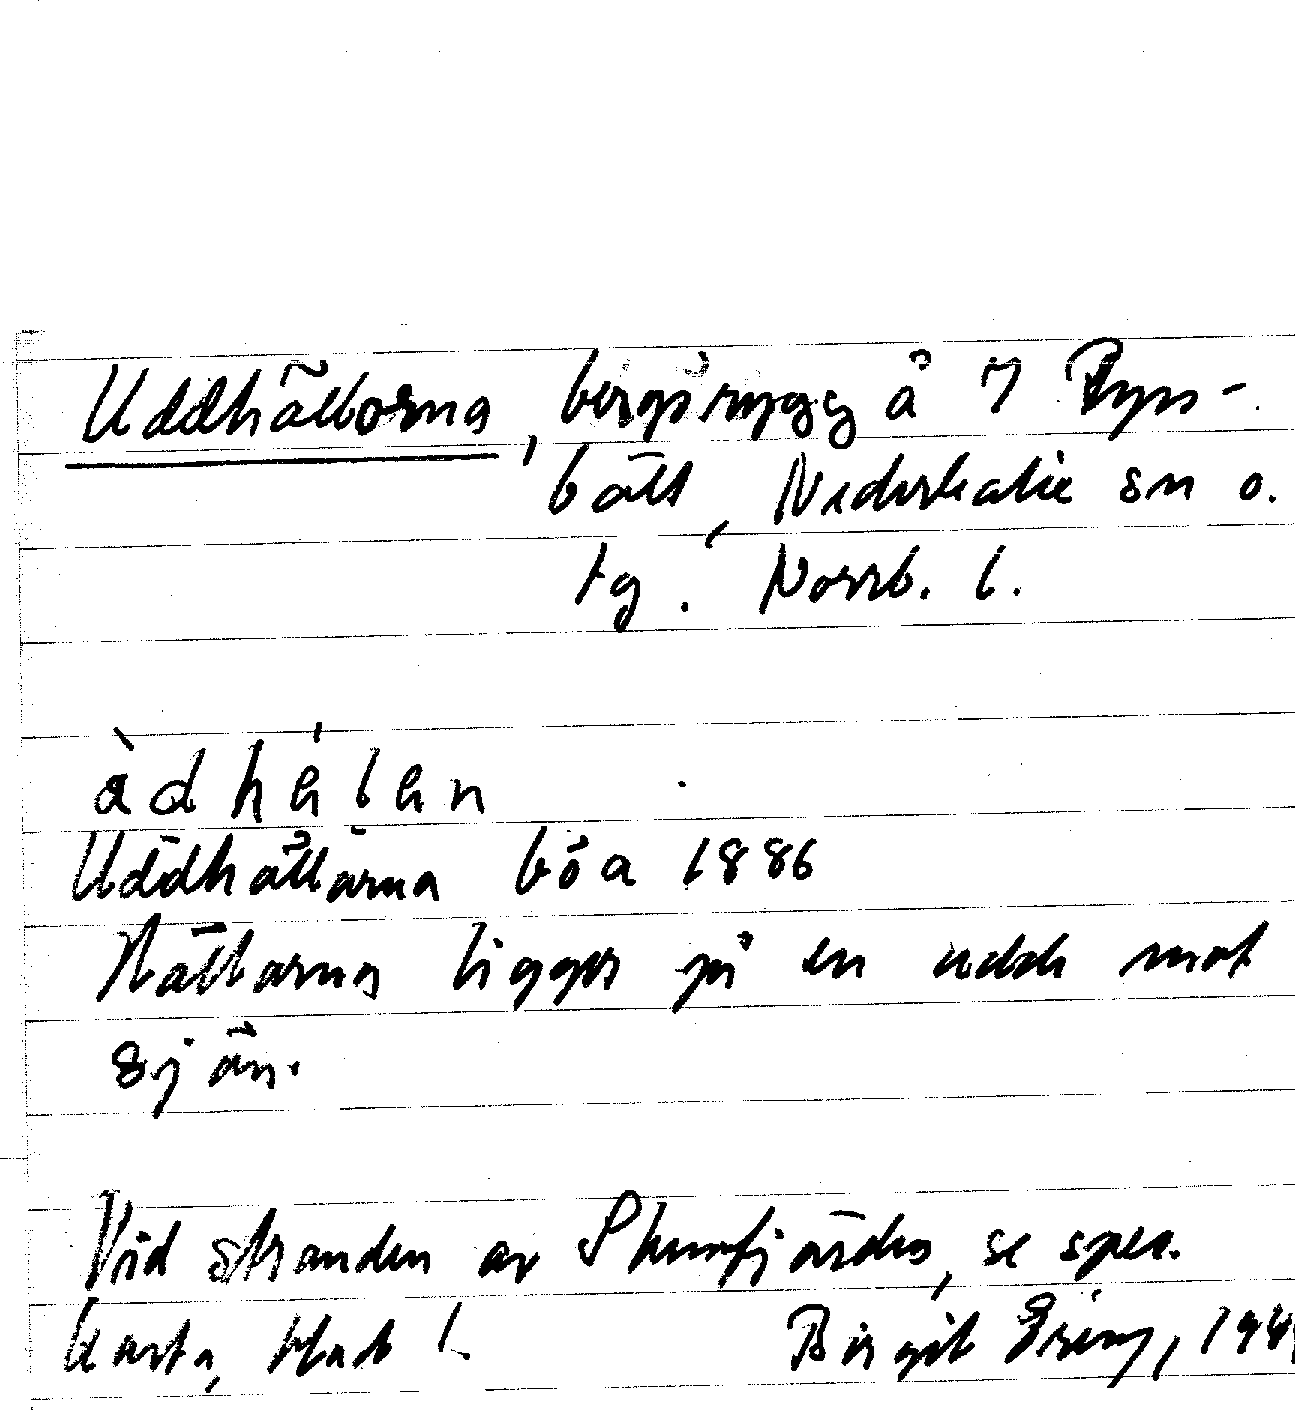 Uddhällorna, bergsrygg å 7 Ryss-
bält, Nederkalix sn o.
tg. Norrb. l.
àdhálan
Uddhällärna löa 1886
Hällarna ligger på en udde mot
sjön.
Vid stranden av fjärden, se spec.
karta, blad 1. Birgit